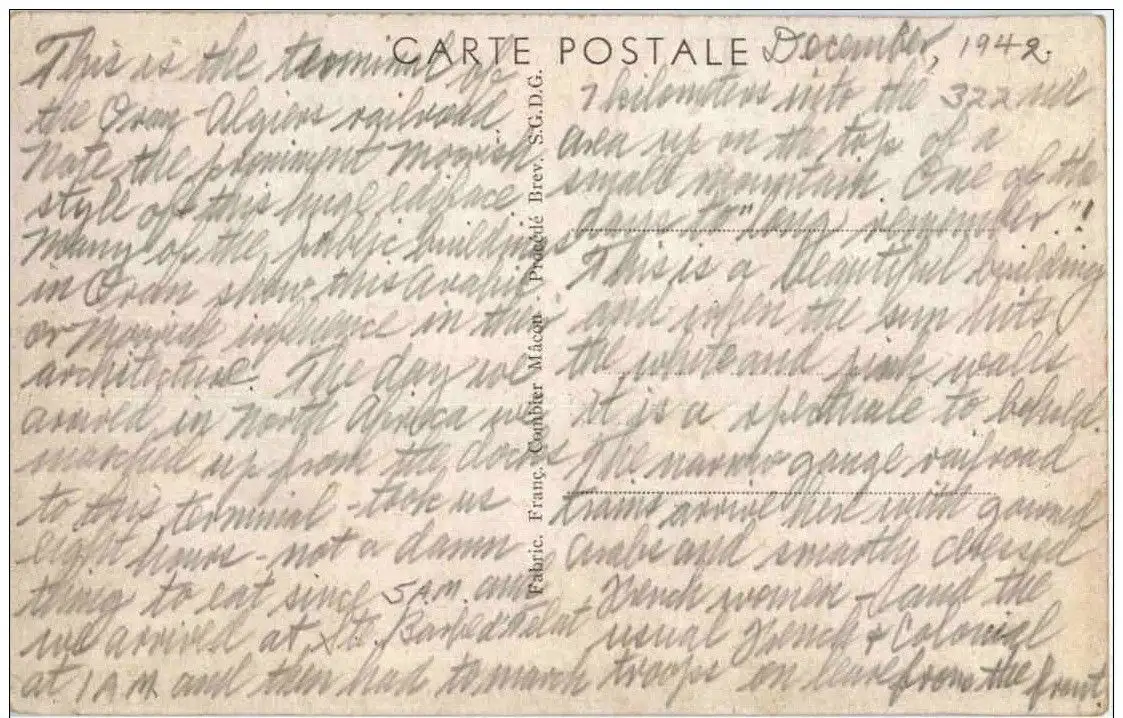 CARTE POSTALE
December, 1942.
This is the terminal of
the Oran-Algiers railroad
Note the prominent Moorish
style of this huge ediface
Many of the public buildings
in Oran show this Arabic
or Moorish influence in their
architecture. The day we
arrived in North Africa we
marched up from the docks
to this terminal - took us
eight hours - not a damn
thing to eat since 5 A.M. and
we arrived at St. Barbe d Tlelat
at 1 AM and then had to march
7 kilometers into the
area up on the top of a
small mountain. One of the
days to "long remember"!
This is a beautiful building
and when the sun hits
the white and pink walls
it is a spectacle to behold.
The narrow gauge railroad
trains arrive here with
Arabs and smartly dressed
French women - and the
usual French & Colonial
troops on leave from the front.
Fabric. Franç. Combier Mâcon - Procédé Brev. S.G.D.G.